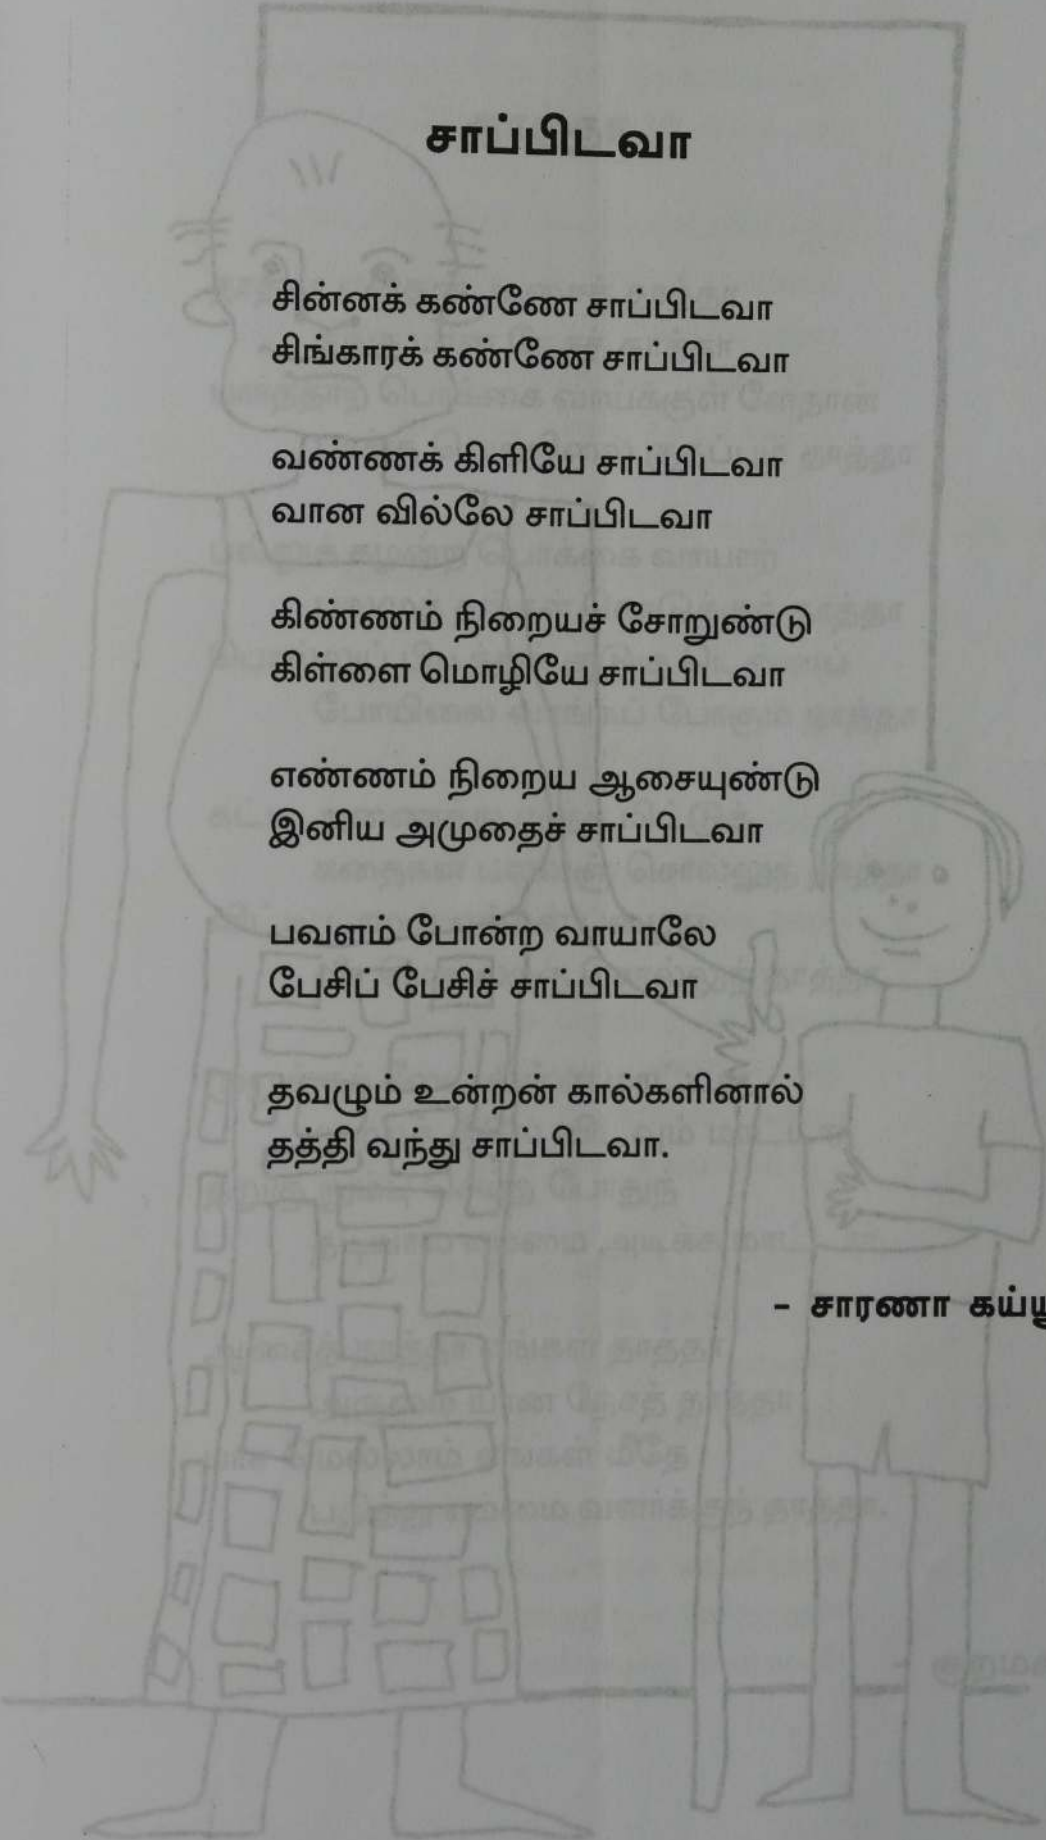 சாப்பிடவா
சின்னக் கண்ணே சாப்பிடவா
சிங்காரக் கண்ணே சாப்பிடவா
வண்ணக் கிளியே சாப்பிடவா
வான வில்லே சாப்பிடவா
கிண்ணம் நிறையச் சோறுண்டு
கிள்ளை மொழியே சாப்பிடவா
எண்ணம் நிறைய ஆசையுண்டு
இனிய அமுதைச் சாப்பிடவா
பவளம் போன்ற வாயாலே
பேசிப் பேசிச் சாப்பிடவா
தவழும் உன்றன் கால்களினால்
தத்தி வந்து சாப்பிடவா.
- சாரணா